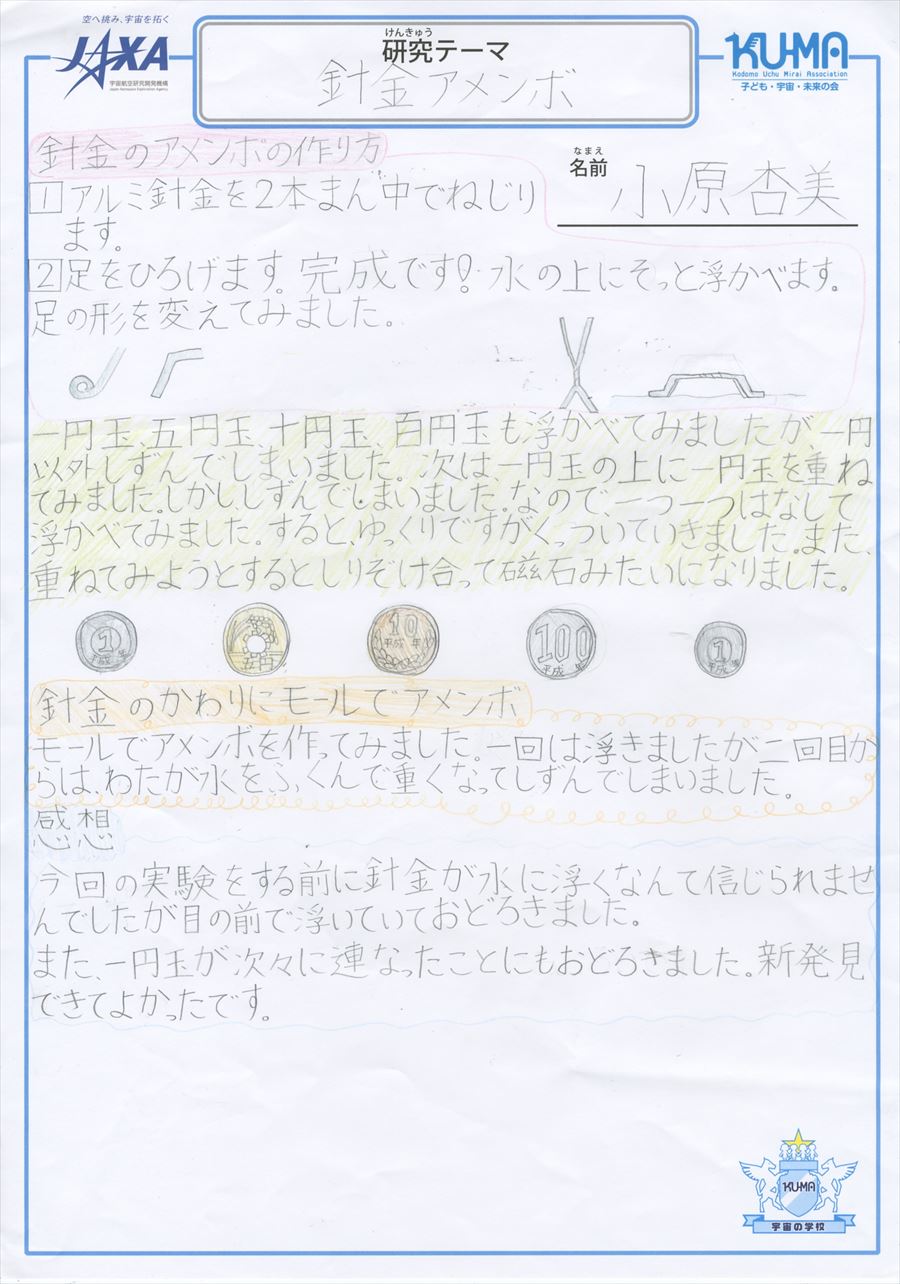 空へ挑み、宇宙を拓く
JAXA
宇宙航空研究開発機構
Japan Aerospace Exploration Agency
けんきゅう
研究テーマ
針金アメンボ
KU-MA
Kodomo Uchu Mirai Association
子ども・宇宙・未来の会
針金のアメンボの作り方
なまえ
名前
小原杏美
1 アルミ針金を2本まん中でねじり
ます。
2 足をひろげます。完成です!水の上にそっと浮かべます。
足の形を変えてみました。
一円玉、五円玉、十円玉、百円玉も浮かべてみましたが一円
以外しずんでしまいました。次は一円玉の上に一円玉を重ね
てみました。しかし、しずんでしまいました。なので、一つ一つはなして
浮かべてみました。すると、ゆっくりですがくっついていきました。また、
重ねてみようとするとしりぞけ合って磁石みたいになりました。
1 平成 年
五円
10 平成 年
100 平成 年
1 平成 年
針金のかわりにモールでアメンボ
モールでアメンボを作ってみました。一回は浮きましたが二回目か
らは、わたが水をふくんで重くなってしずんでしまいました。
感想
今回の実験をする前に針金が水に浮くなんて信じられませ
んでしたが目の前で浮いていておどろきました。
また、一円玉が次々に連なったことにもおどろきました。新発見
できてよかったです。
KU-MA
宇宙の学校